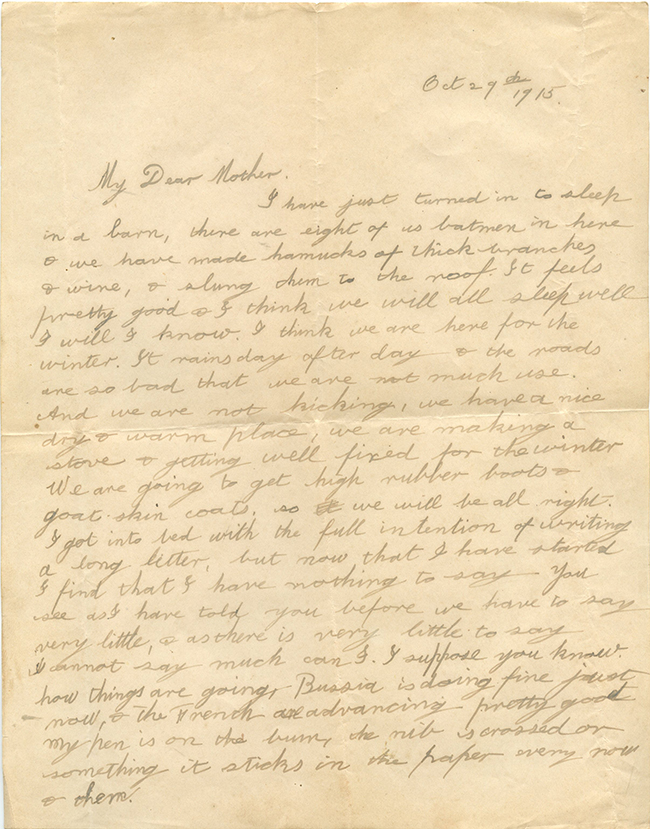 Oct 29th
1915.
My Dear Mother.
I have just turned in to sleep
in a barn, there are eight of us batmen in here
& we have made hamucks of thick branches
& wire, & slung them to the roof. It feels
pretty good & I think we will all sleep well
I will I know. I think we are here for the
winter. It rains day after day & the roads
are so bad that we are not much use.
And we are not kicking, we have a nice
dry & warm place, we are making a
stove & getting well fixed for the winter
We are going to get high rubber boots &
goat-skin coats, so we will be all right.
I got into bed with the full intention of writing
a long letter, but now that I have started
I find that I have nothing to say You
see as I have told you before we have to say
very little, & as there is very little to say
I cannot say much can I. I suppose you know.
how things are going, Russia is doing fine just
now, & the French are advancing pretty good
My pen is on the bum, the nib is crossed or
something it sticks in the paper every now
& then.